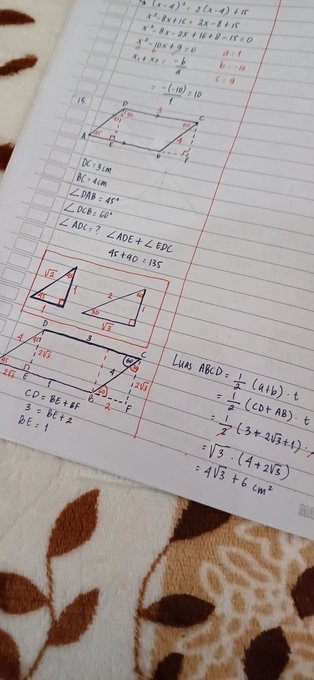 (x-4)² = 2(x-4) + 15
x²-8x+16 = 2x-8+15
x²-8x-2x+16+8-15=0
x²-10x+9=0
a b c
a=1
b=-10
c=9
x₁+x₂ = -b/a
= -(-10)/1 = 10
15.
D 3 C
45 90 60
4
A 45 E B F
DC = 3 cm
BC = 4 cm
∠DAB = 45°
∠DCB = 60°
∠ADC = ? ∠ADE + ∠EDC
45+90 = 135
√2 45 1 45 1
2 60 1 30 √3
D 3 C
45 2√3 60 4 2√3
2√3 E 1 B 2 F
CD = BE + BF
3 = BE + 2
BE = 1
Luas ABCD = 1/2 (a+b) . t
= 1/2 (CD+AB) . t
= 1/2 (3+2√3+1) .
= √3 . (4+2√3)
= 4√3 + 6 cm²